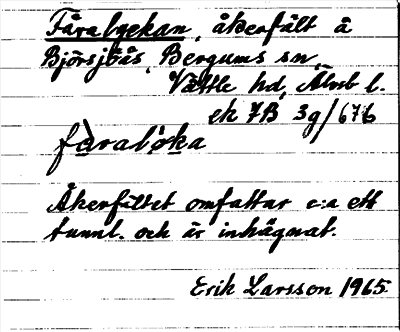 Fåralyckan, åkerfält å
Björsjöås, Bergums sn,
Vättle hd, Älvsb l.
ek 7B 3g/676
Åkerfältet omfattar c:a ett
tunnl. och är inhägnat.
Erik Larsson 1965.